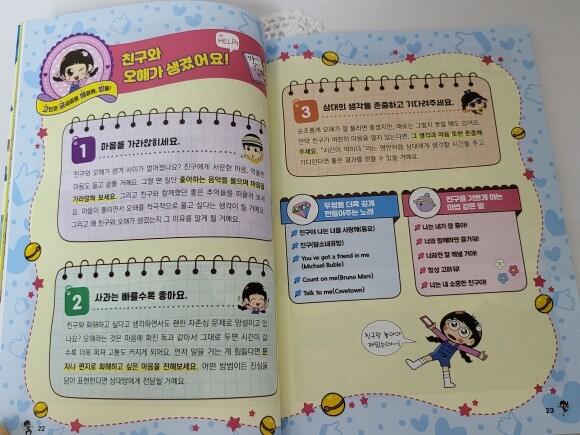 HELP!
친구와
오해가 생겼어요!
고민과 궁금증을 해결해, 빔툴!
1 마음을 가라앉히세요.
친구와 오해가 생겨 사이가 멀어졌나요? 친구에게 서운한 마음, 억울한
마음도 들고 슬플 거예요. 그럴 땐 일단 좋아하는 음악을 들으며 마음을
가라앉혀 보세요. 그리고 친구와 함께했던 좋은 추억들을 떠올려 보세
요. 마음이 풀리면서 오해를 적극적으로 풀고 싶다는 생각이 들 거예요.
그리고 왜 친구와 오해가 생겼는지 그 이유를 알게 될 거예요.
2 사과는 빠를수록 좋아요.
친구와 화해하고 싶다고 생각하면서도 괜한 자존심 문제로 망설이고 있
나요? 오해라는 것은 마음에 퍼진 독과 같아서 그대로 두면 시간이 갈
수록 더욱 퍼져 고통도 커지게 되어요. 먼저 말을 거는 게 힘들다면 문
자나 편지로 화해하고 싶은 마음을 전해보세요. 어떤 방법이든 진심을
담아 표현한다면 상대방에게 전달될 거예요.
22
3 상대의 생각을 존중하고 기다려주세요.
순조롭게 오해가 잘 풀리면 좋겠지만, 때로는 그렇지 못할 때도 있어요.
만약 친구가 여전히 마음을 열지 않는다면, 그 생각과 마음 또한 존중해
주세요. '시간이 약이다.'라는 명언처럼 상대에게 생각할 시간을 주고
기다린다면 좋은 결과를 얻을 수 있을 거예요.
우정을 더욱 깊게
만들어주는 노래
친구야 나는 너를 사랑해(동요)
친구(달소네공방)
You've got a friend in me
(Michael Buble)
Count on me(Bruno Mars)
Talk to me(Cavetown)
친구를 기쁘게 하는
마법 같은 말
나는 네가 참 좋아!
너와 함께하면 즐거워!
너라면 잘 해낼 거야!
항상 고마워!
너는 내 소중한 친구야!
친구랑 놀아야
재밌는데…!
23